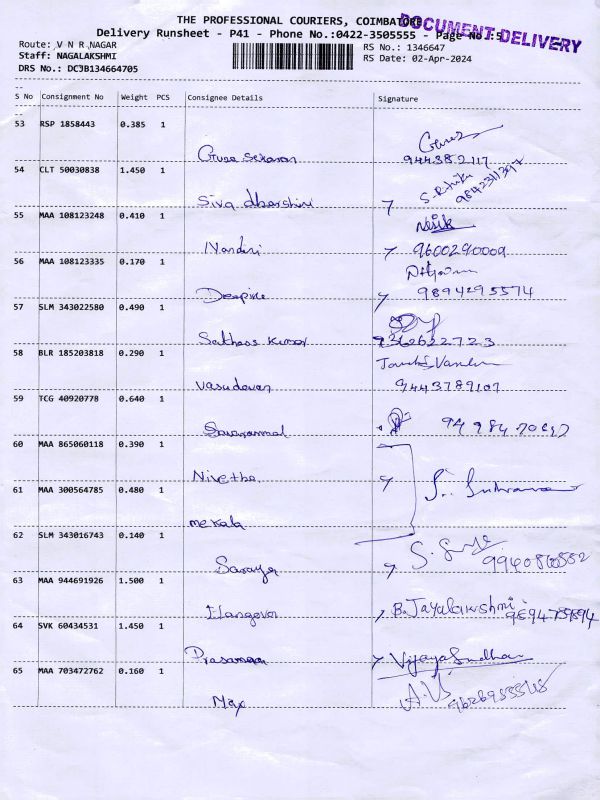 THE PROFESSIONAL COURIERS, COIMBATORE
DOCUMENT DELIVERY
Delivery Runsheet - P41 - Phone No.:0422-3505555 - Page No.:5
Route: V N R NAGAR
RS No.: 1346647
Staff: NAGALAKSHMI
RS Date: 02-Apr-2024
DRS No.: DCJB134664705
S No Consignment No Weight PCS Consignee Details Signature
53 RSP 1858443 0.385 1
Guna Sekaran 944382117
54 CLT 50030838 1.450 1
Siva dharshini
55 MAA 108123248 0.410 1
Nandini 9600290009
56 MAA 108123335 0.170 1
Deepika 9894295574
57 SLM 343022580 0.490 1
Sathass Kumar 9362622723
58 BLR 185203818 0.290 1
Vasudevan 9443789107
59 TCG 40920778 0.640 1
Saravanmal
60 MAA 865060118 0.390 1
Nivetha
61 MAA 300564785 0.480 1
mekala
62 SLM 343016743 0.140 1
Saraya
63 MAA 944691926 1.500 1
Elangovan B. Jayalakshmi
64 SVK 60434531 1.450 1
Prasanna Vijayasudhan
65 MAA 703472762 0.160 1
Max